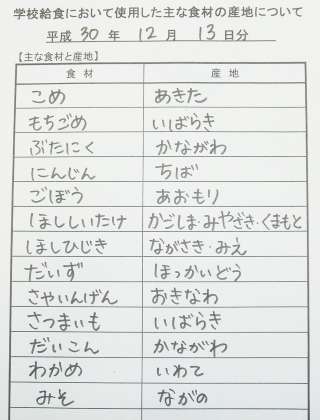 学校給食において使用した主な食材の産地について
平成 30 年 12 月 13 日分
【主な食材と産地】
食材 産地
こめ あきた
もちごめ いばらき
ぶたにく かながわ
にんじん ちば
ごぼう あおもり
ほししいたけ かごしま・みやざき・くまもと
ほしひじき ながさき・みえ
だいず ほっかいどう
さやいんげん おきなわ
さつまいも いばらき
だいこん かながわ
わかめ いわて
みそ ながの